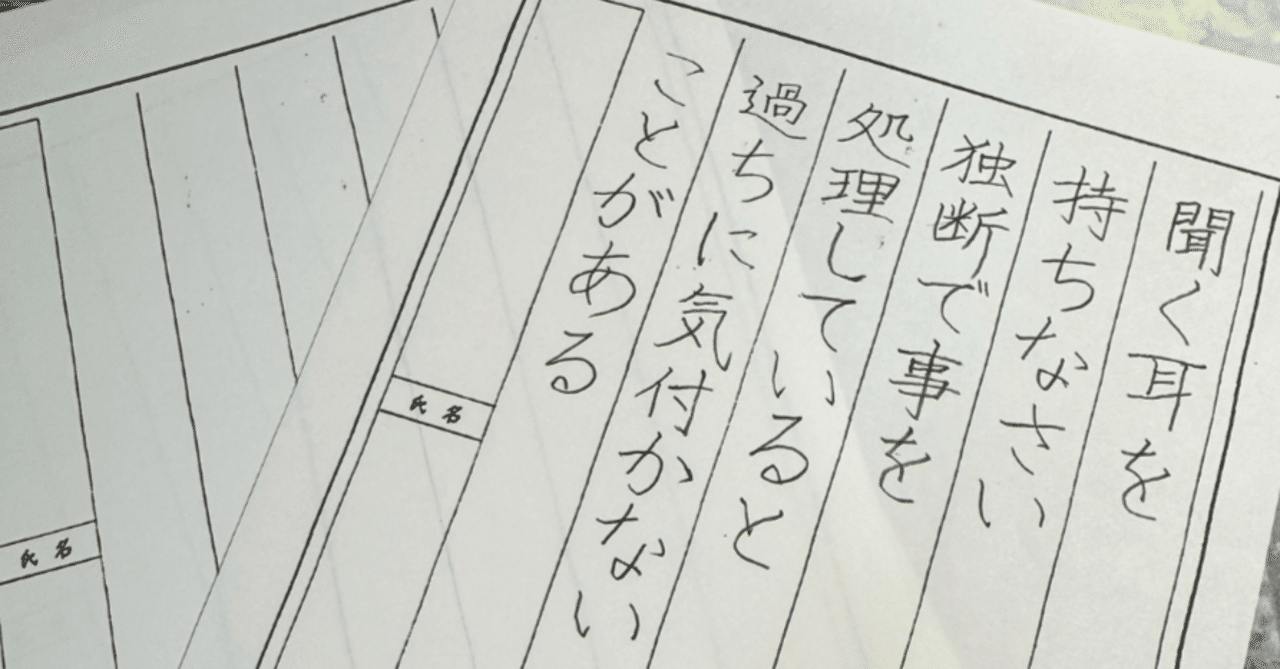 聞く耳を
持ちなさい
独断で事を
処理していると
過ちに気付かない
ことがある
氏名
氏名